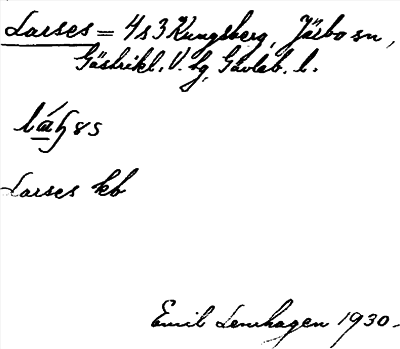 Larses = 4/s 3 Kungsberg, Järbo sn,
Gästrikl. V. hg, Gävleb. l.
Larses kb
Emil Lenhagen 1930.